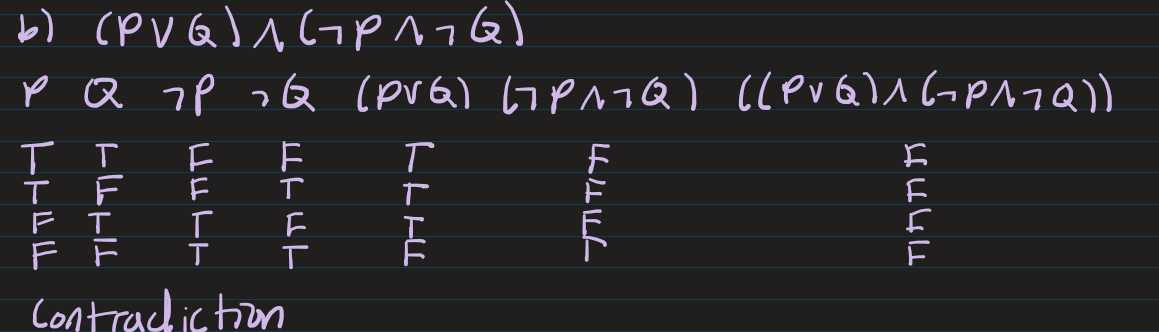 b) (P∨Q)∧(¬P∧¬Q)
P Q ¬P ¬Q (P∨Q) (¬P∧¬Q) ((P∨Q)∧(¬P∧¬Q))
T T F F T F F
T F F T T F F
F T T F T F F
F F T T F T F
Contradiction